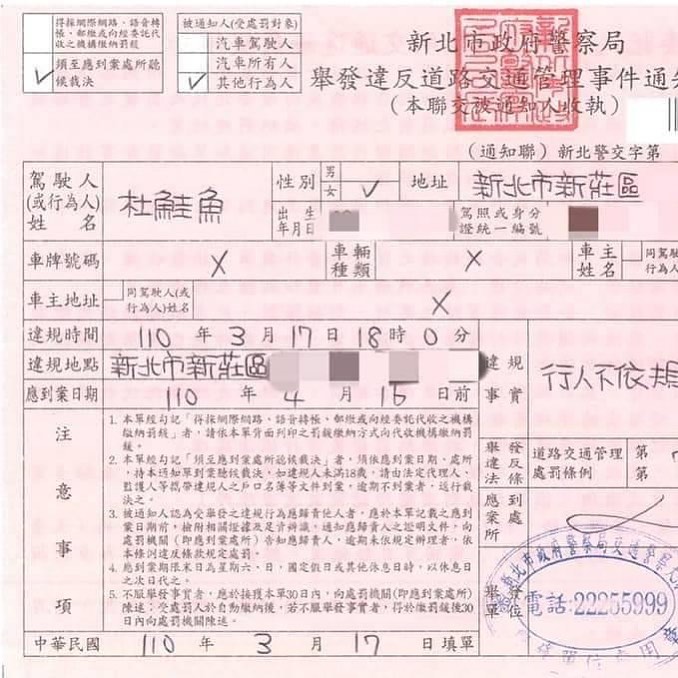 得採網際網路、語音轉
帳、郵繳或向經委託代
收之機構繳納罰鍰
須至應到案處所聽
候裁決
被通知人(受處罰對象)
汽車駕駛人
汽車所有人
其他行為人
新北市政府警察局
舉發違反道路交通管理事件通知
(本聯交被通知人收執)
(通知聯) 新北警交字第
駕駛人
(或行為人)
姓名
杜鮭魚
性別
男
女
地址
新北市新莊區
出生
年月日
駕照或身分
證統一編號
車牌號碼
X
車輛
種類
X
車主
姓名
同駕駛
行為人
車主地址
同駕駛人(或
行為人)姓名
X
違規時間 110 年 3 月 17 日 18 時 0 分
違規地點 新北市新莊區
應到案日期 110 年 4 月 16 日前
違規
事實
行人不依規
注意事項
1. 本單經勾記「得採網際網路、語音轉帳、郵繳或向經委託代收之機構
繳納罰鍰」者,請依本單背面列印之罰鍰繳納方式向代收機構繳納罰
鍰。
2. 本單經勾記「須至應到案處所聽候裁決」者,須依應到案日期、處所,
持本通知單到案聽候裁決,如違規人未滿18歲,請由法定代理人、
監護人等攜帶違規人之戶口名簿等文件到案,逾期不到案者,逕行裁
決之。
3. 被通知人認為受舉發之違規行為應歸責他人者,應於本單記載之應到
案日期前,檢附相關證據及足資辨識、通知應歸責人之證明文件,向
處罰機關(即應到案處所)告知應歸責人,逾期未依規定辦理者,依
本條例違反條款規定處罰。
4. 應到案期限末日為星期六、日、國定假日或其他休息日時,以休息日
之次日代之。
5. 不服舉發事實者,應於接獲本單30日內,向處罰機關(即應到案處所)
陳述;受處罰人於自動繳納後,若不服舉發事實,得於繳罰鍰後30
日內向處罰機關陳述。
舉發
違反
法條
道路交通管理
處罰條例
第
第
應到
案處
所
舉發
單位
新北市政府警察局交通警察大
電話:22255999
中華民國 110 年 3 月 17 日填單